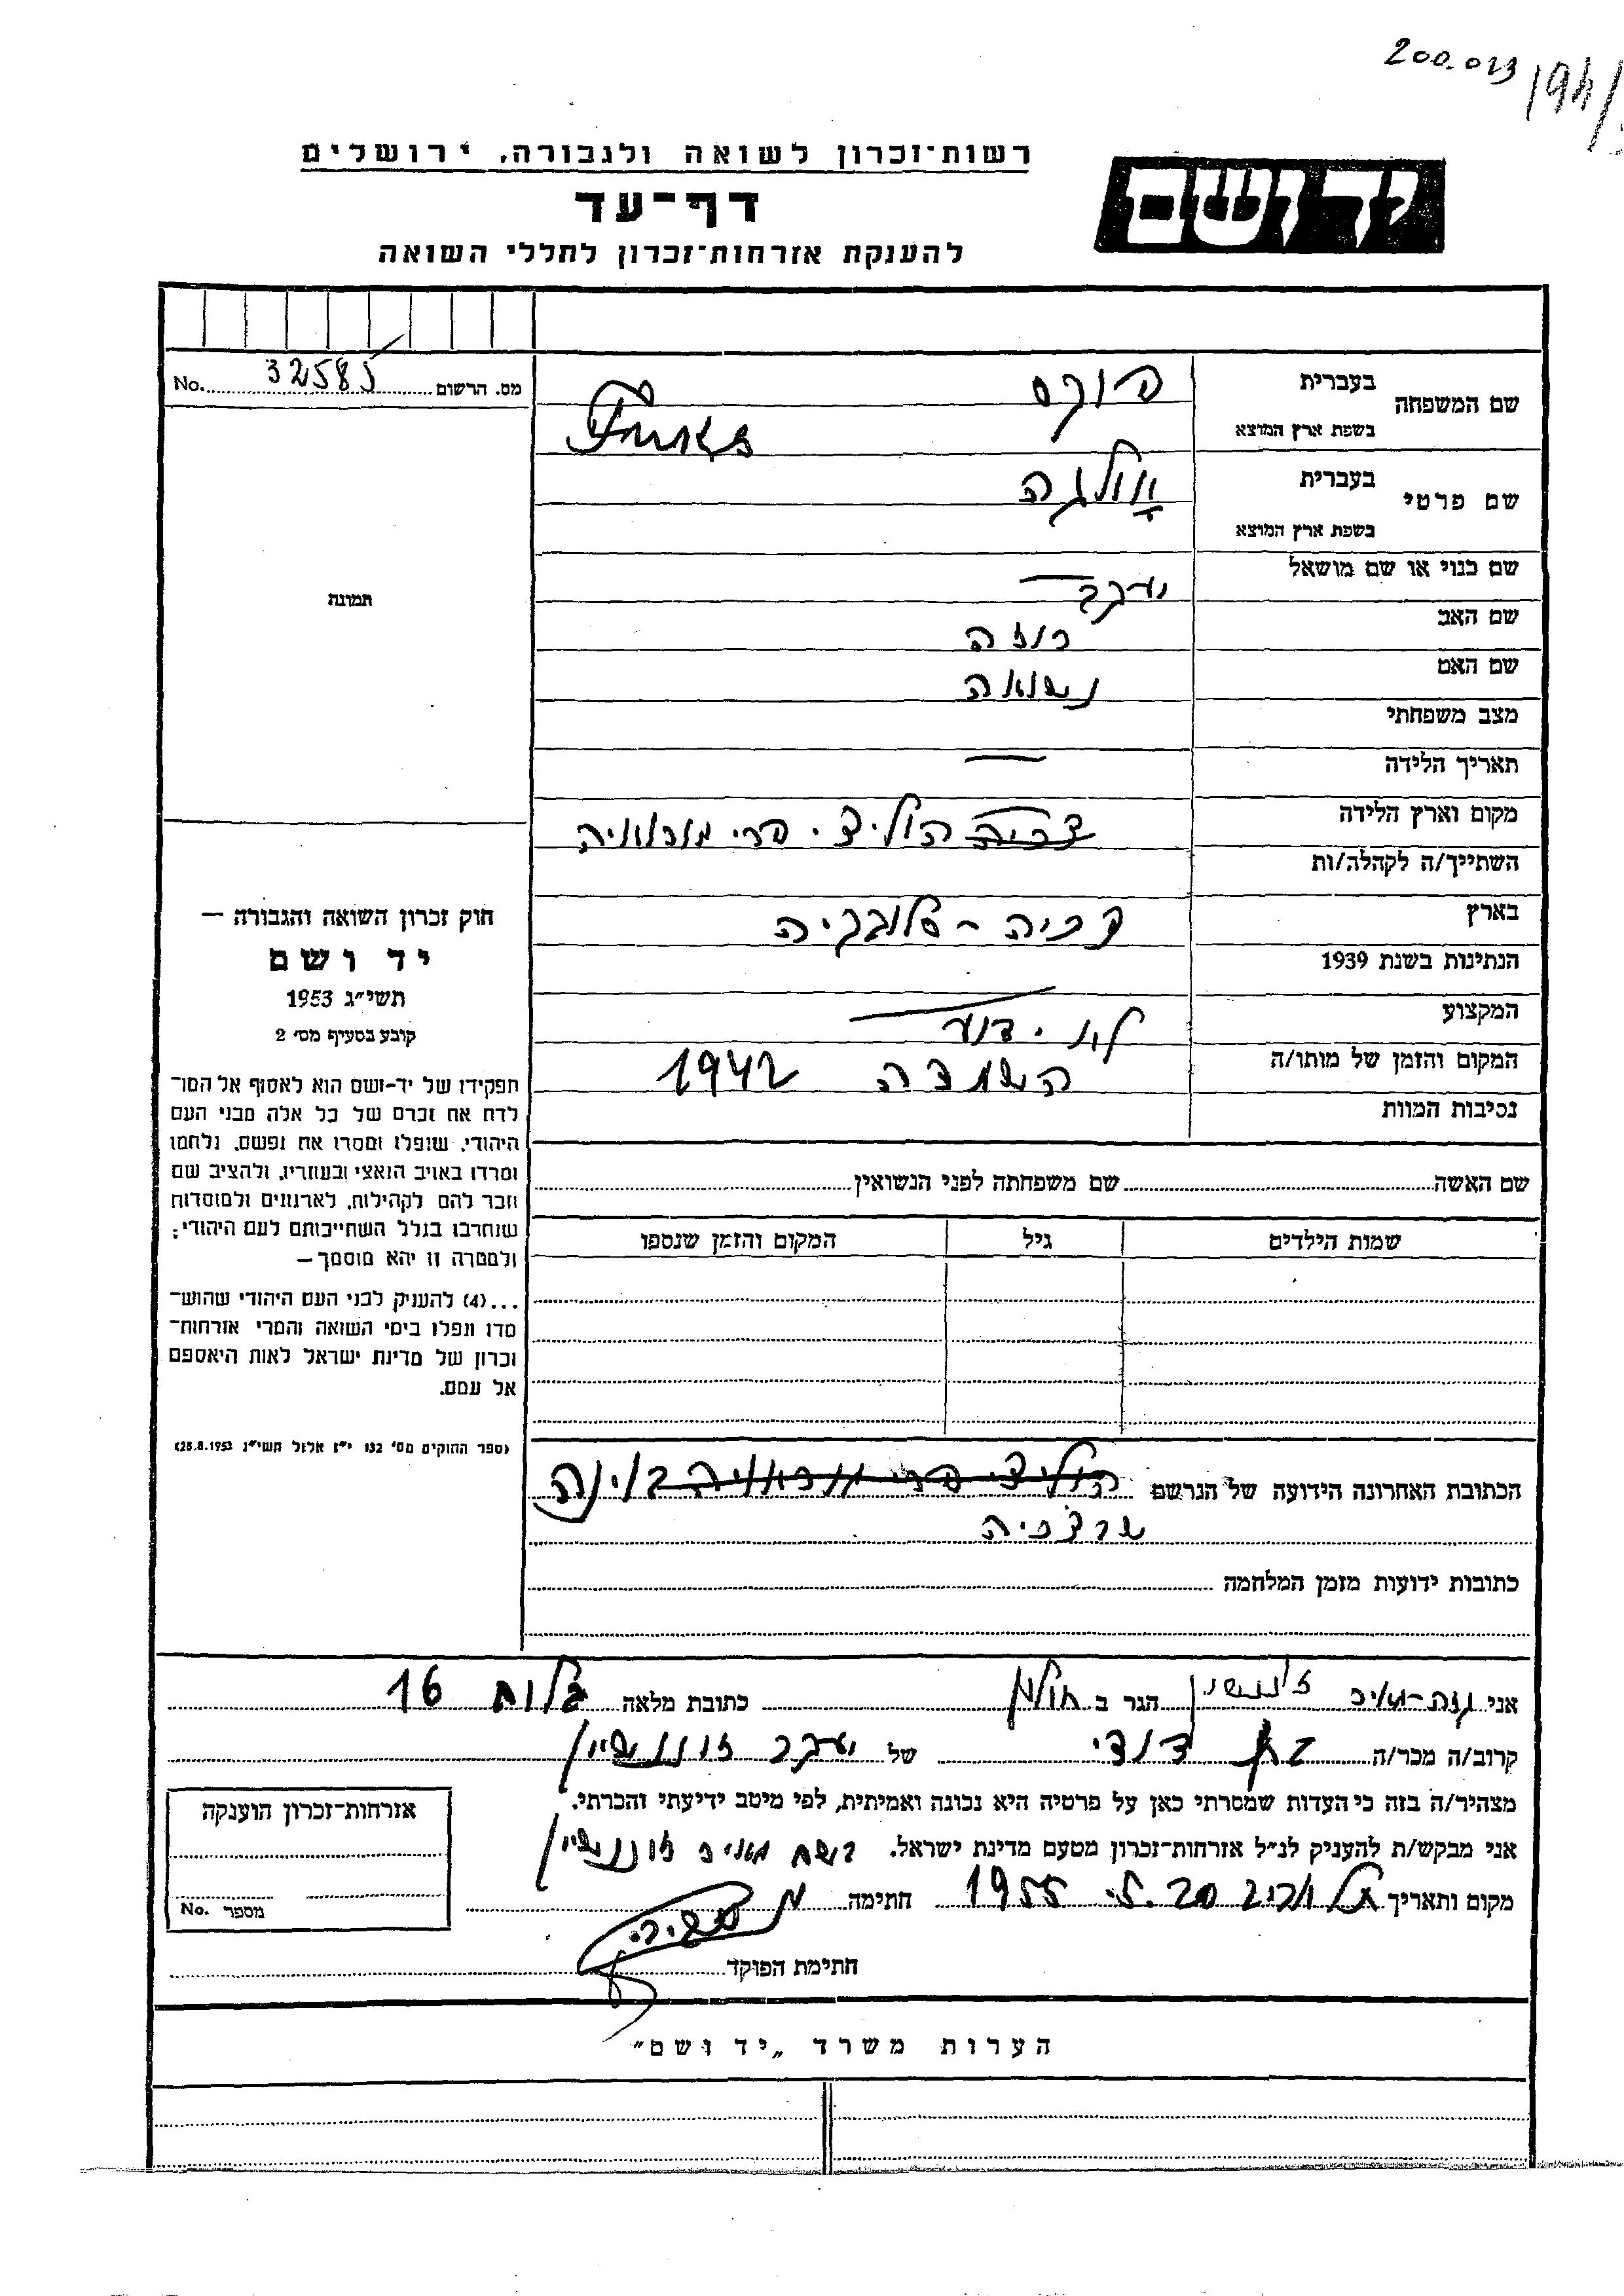 200.013
רשות־זכרון לשואה ולגבורה, ירושלים
יד ושם
דף־עד
להענקת אזרחות־זכרון לחללי השואה
מס. הרשום 32585 No.
שם המשפחה בעברית פוקס
בשפת ארץ המוצא
שם פרטי בעברית אולגה
בשפת ארץ המוצא
שם כנוי או שם מושאל
שם האב יעקב
שם האם רוזה
מצב משפחתי נשואה
תאריך הלידה —
מקום וארץ הלידה
השתייך/ה לקהלה/ות
בארץ צכיה - סלובקיה
הנתינות בשנת 1939
המקצוע
המקום והזמן של מותו/ה לא ידוע
נסיבות המוות השמדה 1942
שם האשה
שם משפחתה לפני הנשואין
שמות הילדים
גיל
המקום והזמן שנספו
הכתובת האחרונה הידועה של הנרשם
כתובות ידועות מזמן המלחמה
תמונה
חוק זכרון השואה והגבורה —
יד ושם
תשי״ג 1953
קובע בסעיף מס׳ 2
תפקידו של יד-ושם הוא לאסוף אל המו־
לדת את זכרם של כל אלה מבני העם
היהודי, שנפלו ומסרו את נפשם, נלחמו
ומרדו באויב הנאצי ובעוזריו, ולהציב שם
וזכר להם לקהילות, לארגונים ולמוסדות
שנחרבו בגלל השתייכותם לעם היהודי;
ולמטרה זו יהא מוסמך —
...(4) להעניק לבני העם היהודי שהוש־
מדו ונפלו בימי השואה והמרי אזרחות־
זכרון של מדינת ישראל לאות היאספם
אל עמם.
(ספר החוקים מס׳ 132 י״ז אלול תשי״ג 28.8.1953)
אני הגר ב חולון כתובת מלאה 16
קרוב/ה מכר/ה בת דודי של יעקב זוננשיין
מצהיר/ה בזה כי העדות שמסרתי כאן על פרטיה היא נכונה ואמיתית, לפי מיטב ידיעתי והכרתי.
אני מבקש/ת להעניק לנ״ל אזרחות־זכרון מטעם מדינת ישראל. זוננשיין
מקום ותאריך תל אביב 20.5.1955 חתימה
חתימת הפוקד
אזרחות־זכרון הוענקה
מספר No.
הערות משרד „יד ושם״